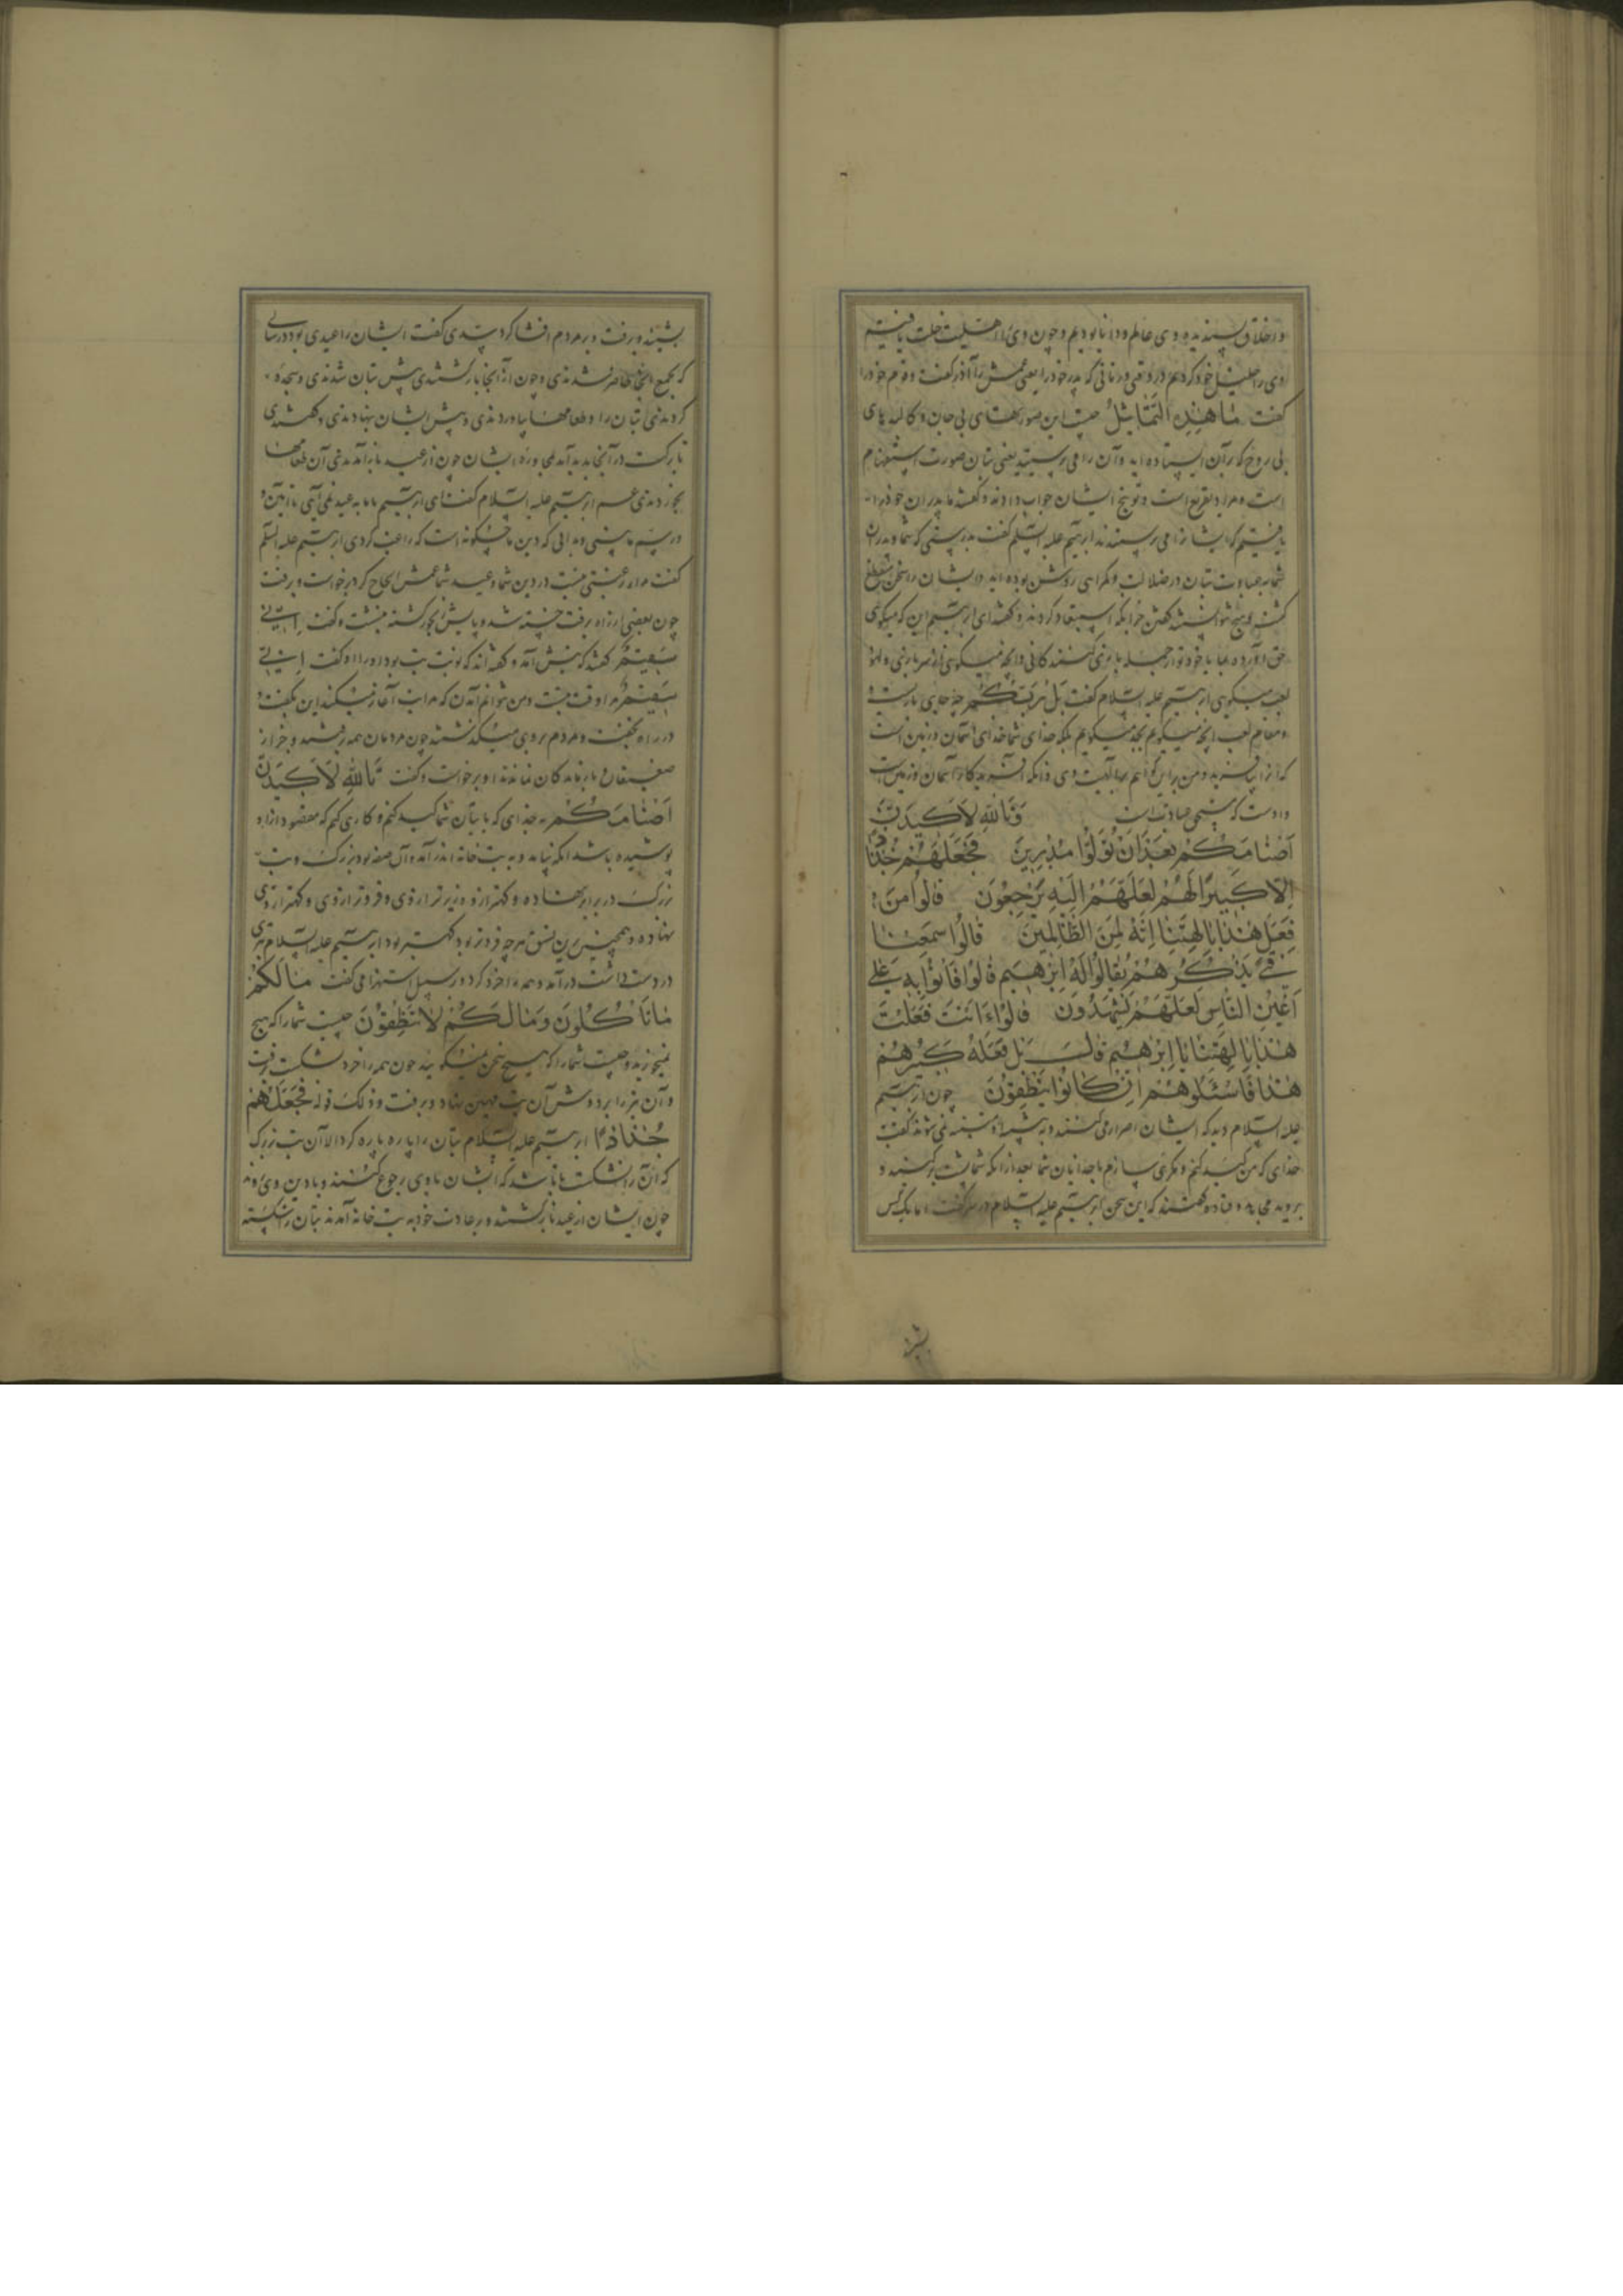 و اخلاق پسندیده وی عالم و دانا بودیم و چون وی را اهلیت خلت یافتیم
وی را خلیل خود کردیم در وقتی و زمانی که پدر خود را یعنی عمش را آذر گفت و قوم خود را
گفت مَا هٰذِهِ التَّمَاثِیلُ چیست این صورتهای بی جان و کالبدهای
بی روح که بر آن ایستاده اید و آن را می پرستید یعنی بتان صورت استفهام
است و مراد تقریع است و توبیخ ایشان جواب دادند و گفتند ما پدران خود را
یافتیم که ایشانرا می پرستیدند ابرهیم علیه السلم گفت بدرستی که شما و پدران
شما به عبادت بتان در ضلالت و گمراهی روشن بوده اید و ایشان را سخن منقطع
گشت و هیچ نتوانستند گفتن جز آنکه استبعاد کردند و گفتند ای ابرهیم این که میگوئی
حق آورده بما یا خود تو از جمله بازی کنندگانی و آنچه میگویی از سر بازی و لهو
لعب میگویی ابرهیم علیه السلام گفت بَلْ رَبُّکُمْ چه جای بازیست و
و مقام لعب آنچه میگویم بجد میگویم بلکه خدای شما خدای آسمان و زمین است
که آنرا بیافرید و من برین گواهم بوحدانیت وی و آنکه آفریدگار آسمان و زمین است
و اوست که مستحق عبادت است وَتَاللّٰهِ لَأَکِیدَنَّ
أَصْنَامَکُمْ بَعْدَ أَنْ تُوَلُّوا مُدْبِرِینَ فَجَعَلَهُمْ جُذَاذًا
إِلَّا کَبِیرًا لَهُمْ لَعَلَّهُمْ إِلَیْهِ یَرْجِعُونَ قَالُوا مَنْ
فَعَلَ هٰذَا بِآلِهَتِنَا إِنَّهُ لَمِنَ الظَّالِمِینَ قَالُوا سَمِعْنَا
فَتًی یَذْکُرُهُمْ یُقَالُ لَهُ إِبْرٰهِیمُ قَالُوا فَأْتُوا بِهِ عَلٰی
أَعْیُنِ النَّاسِ لَعَلَّهُمْ یَشْهَدُونَ قَالُوا ءَأَنْتَ فَعَلْتَ
هٰذَا بِآلِهَتِنَا یَا إِبْرٰهِیمُ قَالَ بَلْ فَعَلَهُ کَبِیرُهُمْ
هٰذَا فَاسْئَلُوهُمْ إِنْ کَانُوا یَنْطِقُونَ چون ابرهیم
علیه السلام دید که ایشان اصرار می کنند و متنبه نمی شوند گفت
خدای که من کید کنم و مکری سازم با خدایان شما بعد از آنکه شما پشت بر کنید و
بروید مجاهد و قتاده گفتند که این سخن ابرهیم علیه السلام در سر گفت اما یک کس
بشنید
بشنید و برفت و بر مردم افشا کرد سدی گفت ایشان را عیدی بود در سالی
که بجمع آنجا حاضر شدندی و چون از آنجا بازگشتندی پیش بتان شدندی و سجده
کردندی بتان را و طعامها بیاوردندی و پیش ایشان بنهادندی و گفتندی
تا برکت در آنجا پدید آمدی و ایشان چون از عید باز آمدندی آن طعامها
بخوردندی عم ابرهیم علیه السلام گفت ای ابرهیم با ما به عید نمی آیی تا آیین و
رسم ما بینی و بدانی که دین ما چگونه است که راغب گردی ابرهیم علیه السلم
گفت مرا رغبتی نیست در دین شما و عید شما عمش الحاح کرد برخواست و برفت
چون بعضی از راه برفت خسته شد و پایش رنجور گشته بنشست و گفت إِنِّی
سَقِیمٌ گفتند که پیش آمد و گفته اند که نوبت تب بود او را او گفت إِنِّی
سَقِیمٌ مرا وقت تبست و من نتوانم آمدن که مرا تب آغاز میکند این بگفت و
در راه بخفت و مردم بر وی میگذشتند چون مردمان همه رفتند و جز از
ضعیفان و بازماندگان نماندند او برخواست و گفت تَاللّٰهِ لَأَکِیدَنَّ
أَصْنَامَکُمْ به خدای که با بتان شما کید کنم و کاری کنم که مقصود از او
پوشیده باشد آنگه بیامد و به بت خانه اندر آمد و آن صفه بود بزرگ و بت
بزرگ در برابر نهاده و کهتر ازو و زیرتر از وی و فروتر از وی و کهتر از وی
نهاده و همچنین برین نسق هر چه فروتر بود کهتر بود ابرهیم علیه السلام تبری
در دست داشت در آمد و همه را خرد کرد و بر سبیل استهزا می گفت مَا لَکُمْ
مَا تَأْکُلُونَ وَمَا لَکُمْ لَا تَنْطِقُونَ چیست شما را که هیچ
نمیخورید و چیست شما را که هیچ سخن نمیگویید چون همه را خرد بشکست برفت
و آن تبر را بر دوش آن بت مهین نهاد و برفت و ذلک قوله فَجَعَلَهُمْ
جُذَاذًا ابرهیم علیه السلام بتان را پاره پاره کرد الا آن بت بزرگ
که آن را نشکست تا باشد که ایشان با وی رجوع کنند و با دین وی
چون ایشان از عید باز گشتند و بر عادت خود به بت خانه آمدند بتان را شکسته